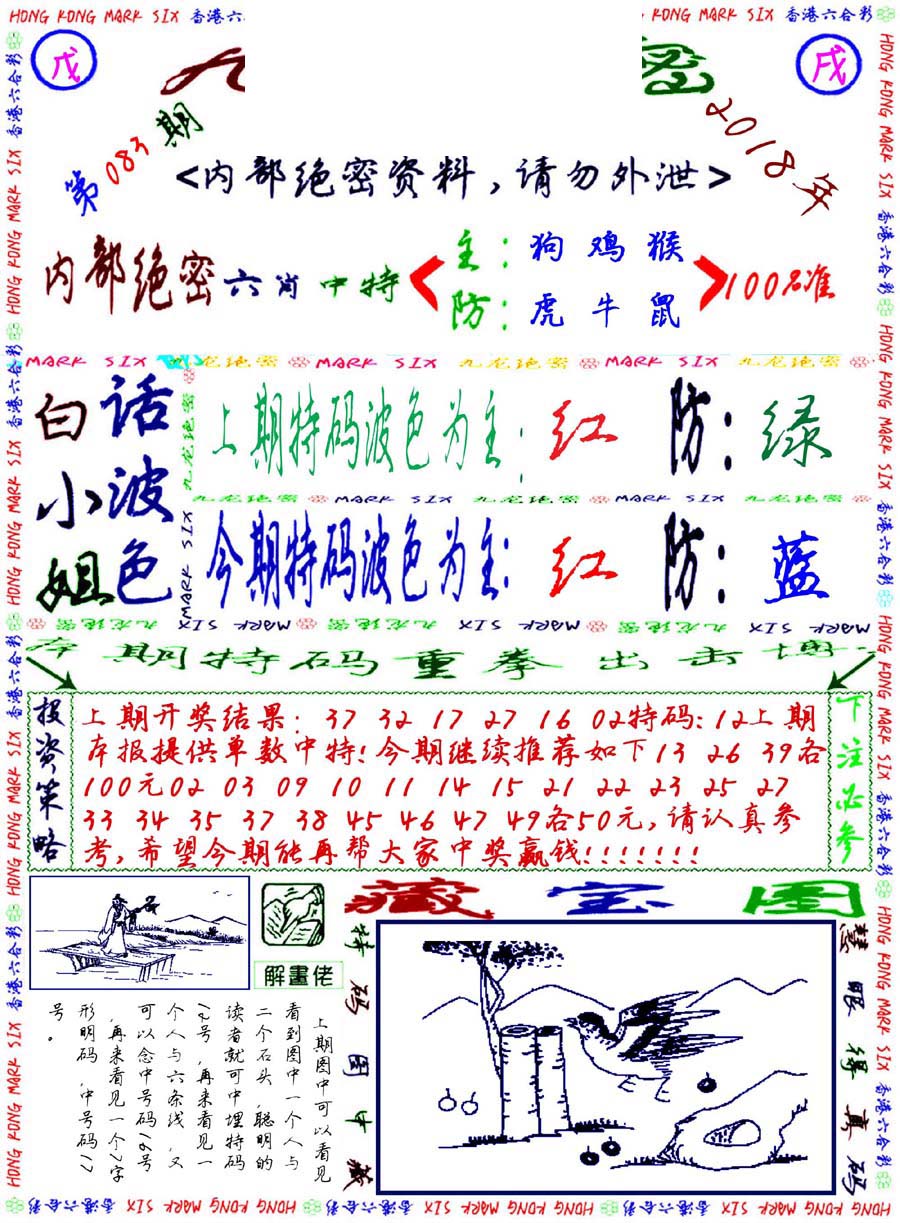 HONG KONG MARK SIX 香港六合彩
KONG MARK SIX 香港六合彩
戊
密
戌
第083期
2018年
<内部绝密资料,请勿外泄>
内部绝密六肖中特
主:狗鸡猴
防:虎牛鼠
100%准
MARK SIX 九龙绝密 MARK SIX 九龙绝密 MARK SIX 九龙绝密
白话
小波
姐色
上期特码波色为主:红 防:绿
九龙绝密 MARK SIX 九龙绝密 MARK SIX 九龙绝密
今期特码波色为主:红 防:蓝
九龙绝密 MARK SIX 九龙绝密 MARK SIX 九龙绝密 MARK SIX
期特码重拳出击
投资策略
上期开奖结果: 37 32 17 27 16 02特码:12上期
本报提供单数中特!今期继续推荐如下13 26 39各
100元02 03 09 10 11 14 15 21 22 23 25 27
33 34 35 37 38 45 46 47 49各50元,请认真参
考,希望今期能再帮大家中奖赢钱!!!!!!!
下注必参
解畫佬
藏宝图
特码图中藏
慧眼得真码
上期图中可以看见
看到图中一个人与
二个石头,聪明的
读者就可中埋特码
12号,再来看见一
个人与六条线,又
可以念中号码16号
,再来看见一个7字
形明码,中号码17
号。
HONG KONG MARK SIX 香港六合彩